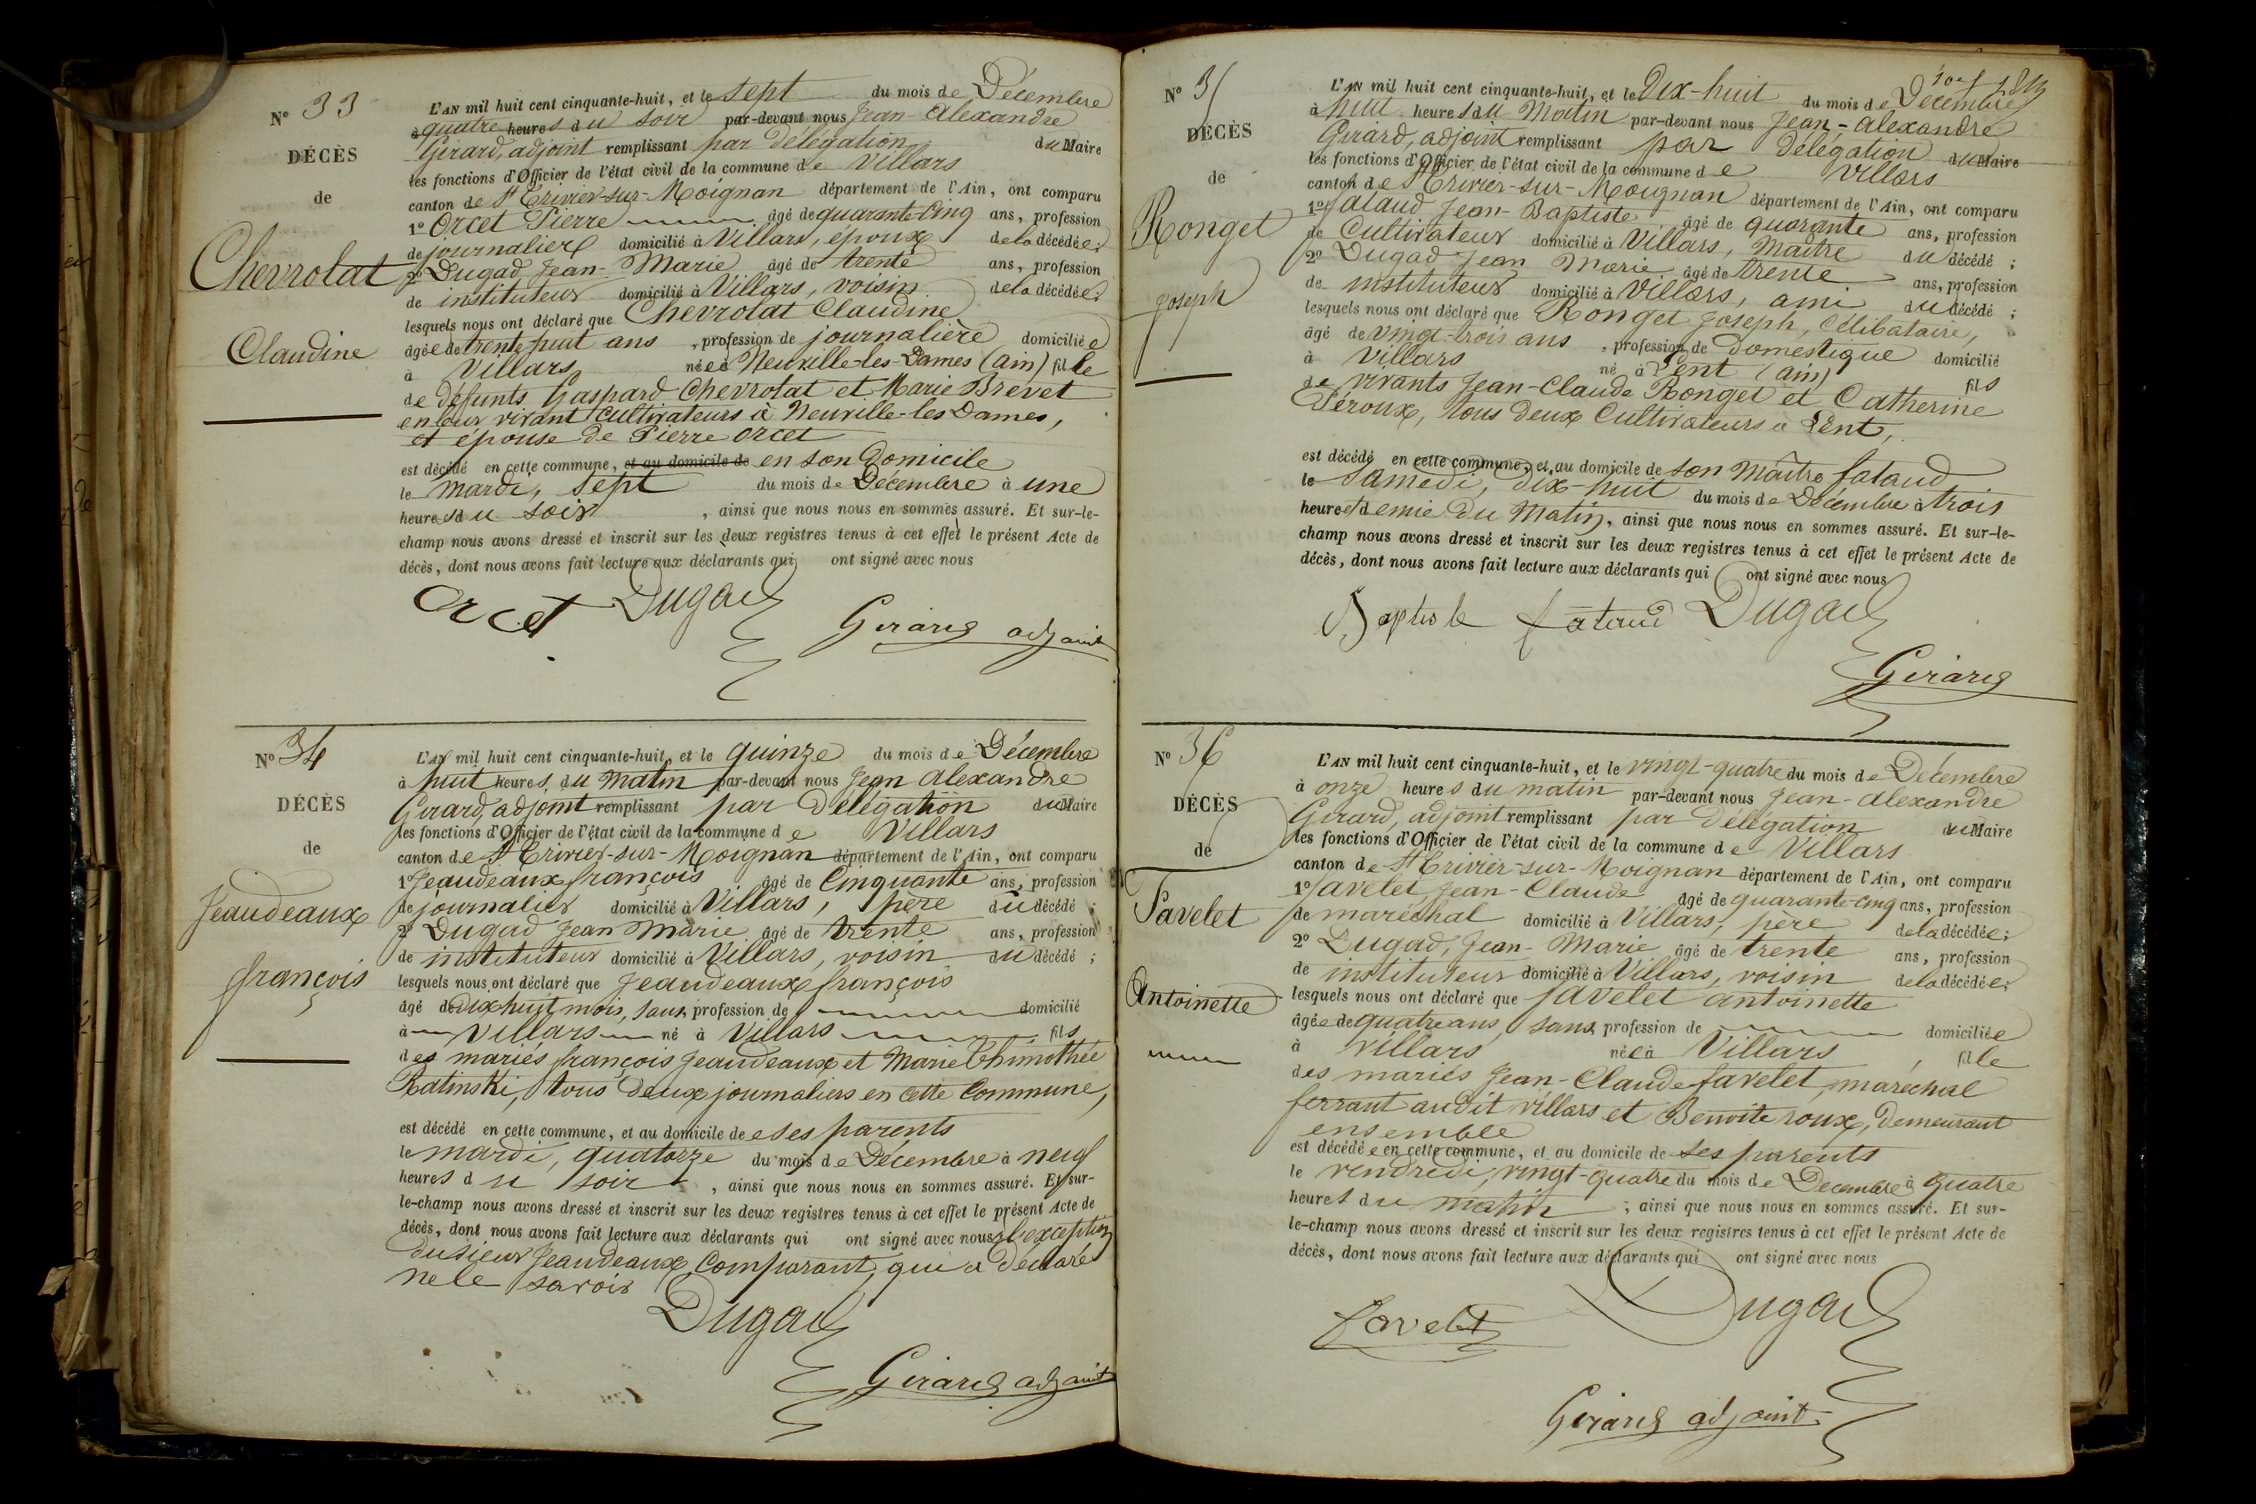 N° 33
DÉCÈS
de
Chevrolat
Claudine
L'AN mil huit cent cinquante-huit, et le sept du mois de Décembre
à quatre heures du soir par-devant nous Jean-Alexandre
Girard, adjoint remplissant par délégation du Maire
les fonctions d'Officier de l'état civil de la commune de Villars
canton de St Trivier-sur-Moignan département de l'Ain, ont comparu
1° Orcet Pierre âgé de quarante-cinq ans, profession
de journalier domicilié à Villars, époux de la décédée;
2° Dugad Jean-Marie âgé de trente ans, profession
de instituteur domicilié à Villars, voisin de la décédée;
lesquels nous ont déclaré que Chevrolat Claudine
âgée de trente huit ans, profession de journalière domiciliée
à Villars née à Neuville-les-Dames (ain) fille
de défunts Gaspard Chevrolat et Marie Brevet
en leur vivant cultivateurs à Neuville-les Dames,
et épouse de Pierre Orcet
est décédé en cette commune, et au domicile de en son Domicile
le mardi, sept du mois de Décembre à une
heures du soir, ainsi que nous nous en sommes assuré. Et sur-le-
champ nous avons dressé et inscrit sur les deux registres tenus à cet effet le présent Acte de
décès, dont nous avons fait lecture aux déclarants qui ont signé avec nous
Orcet Dugad
Girard adjoint
N° 34
DÉCÈS
de
Jeaudeaux
françois
L'AN mil huit cent cinquante-huit, et le quinze du mois de Décembre
à huit heures du matin par-devant nous Jean Alexandre
Girard, adjoint remplissant par Délégation du Maire
les fonctions d'Officier de l'état civil de la commune de Villars
canton de St Trivier-sur-Moignan département de l'Ain, ont comparu
1° Jeaudeaux françois âgé de Cinquante ans, profession
de journalier domicilié à Villars, père du décédé;
2° Dugad Jean Marie âgé de trente ans, profession
de instituteur domicilié à Villars, voisin du décédé;
lesquels nous ont déclaré que Jeaudeaux françois
âgé de dix-huit mois, sans profession de domicilié
à Villars né à Villars fils
des mariés françois Jeaudeaux et Marie Thimothée
Ratinski, tous deux journaliers en cette Commune,
est décédé en cette commune, et au domicile de ses parents
le mardi, quatorze du mois de Décembre à neuf
heures du soir, ainsi que nous nous en sommes assuré. Et sur-
le-champ nous avons dressé et inscrit sur les deux registres tenus à cet effet le présent Acte de
décès, dont nous avons fait lecture aux déclarants qui ont signé avec nous à l'exception
du sieur Jeaudeaux, comparant, qui a déclaré
ne le savoir
Dugad
Girard adjoint
N° 35
DÉCÈS
de
Ronget
Joseph
L'AN mil huit cent cinquante-huit, et le Dix-huit du mois de Décembre
à huit heures du Matin par-devant nous Jean-Alexandre
Girard, adjoint remplissant par Délégation du Maire
les fonctions d'Officier de l'état civil de la commune de Villars
canton de St Trivier-sur-Moignan département de l'Ain, ont comparu
1° fataud Jean-Baptiste âgé de quarante ans, profession
de Cultivateur domicilié à Villars, Maître du décédé;
2° Dugad Jean Marie âgé de trente ans, profession
de instituteur domicilié à Villars, ami du décédé;
lesquels nous ont déclaré que Ronget Joseph, célibataire,
âgé de vingt-trois ans, profession de domestique domicilié
à Villars né à Dent (ain) fils
de vivants Jean-Claude Ronget et Catherine
Féroux, tous deux Cultivateurs à Dent,
est décédé en cette commune, et au domicile de son Maître fataud
le Samedi, dix-huit du mois de Décembre à trois
heures et demie du Matin, ainsi que nous nous en sommes assuré. Et sur-le-
champ nous avons dressé et inscrit sur les deux registres tenus à cet effet le présent Acte de
décès, dont nous avons fait lecture aux déclarants qui ont signé avec nous
Baptiste fataud Dugad
Girard
N° 36
DÉCÈS
de
Favelet
Antoinette
L'AN mil huit cent cinquante-huit, et le vingt-quatre du mois de Décembre
à onze heures du matin par-devant nous Jean-Alexandre
Girard, adjoint remplissant par délégation du Maire
les fonctions d'Officier de l'état civil de la commune de Villars
canton de St Trivier-sur-Moignan département de l'Ain, ont comparu
1° favelet Jean-Claude âgé de quarante-cinq ans, profession
de maréchal domicilié à Villars, père de la décédée;
2° Dugad, Jean-Marie âgé de trente ans, profession
de instituteur domicilié à Villars, voisin de la décédée;
lesquels nous ont déclaré que favelet antoinette
âgée de quatre ans, sans profession de domiciliée
à Villars née à Villars, fille
des mariés Jean-Claude favelet, maréchal
ferrant audit Villars et Benoite roux, demeurant
ensemble
est décédée en cette commune, et au domicile de ses parents
le vendredi, vingt-quatre du mois de Décembre à quatre
heures du matin; ainsi que nous nous en sommes assuré. Et sur-
le-champ nous avons dressé et inscrit sur les deux registres tenus à cet effet le présent Acte de
décès, dont nous avons fait lecture aux déclarants qui ont signé avec nous
favelet Dugad
Girard adjoint